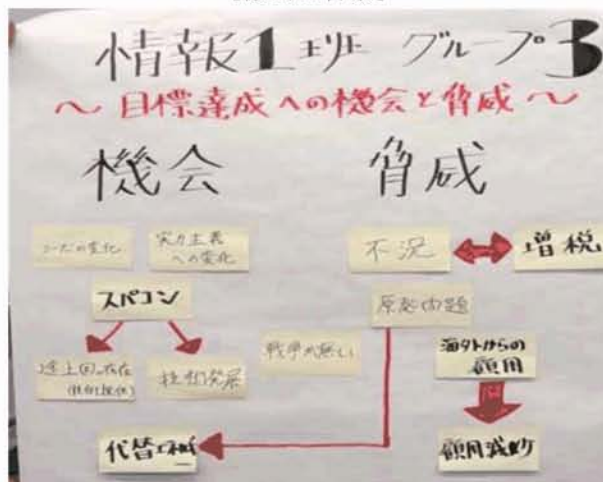 情報1班 グループ3
〜目標達成への機会と脅威〜
機会
脅威
ニーズの変化
実力主義
への変化
スパコン
途上国の存在
(技術提供)
技術発展
戦争が無い
代替エネルギー
不況
増税
原発問題
海外からの
雇用
雇用減少